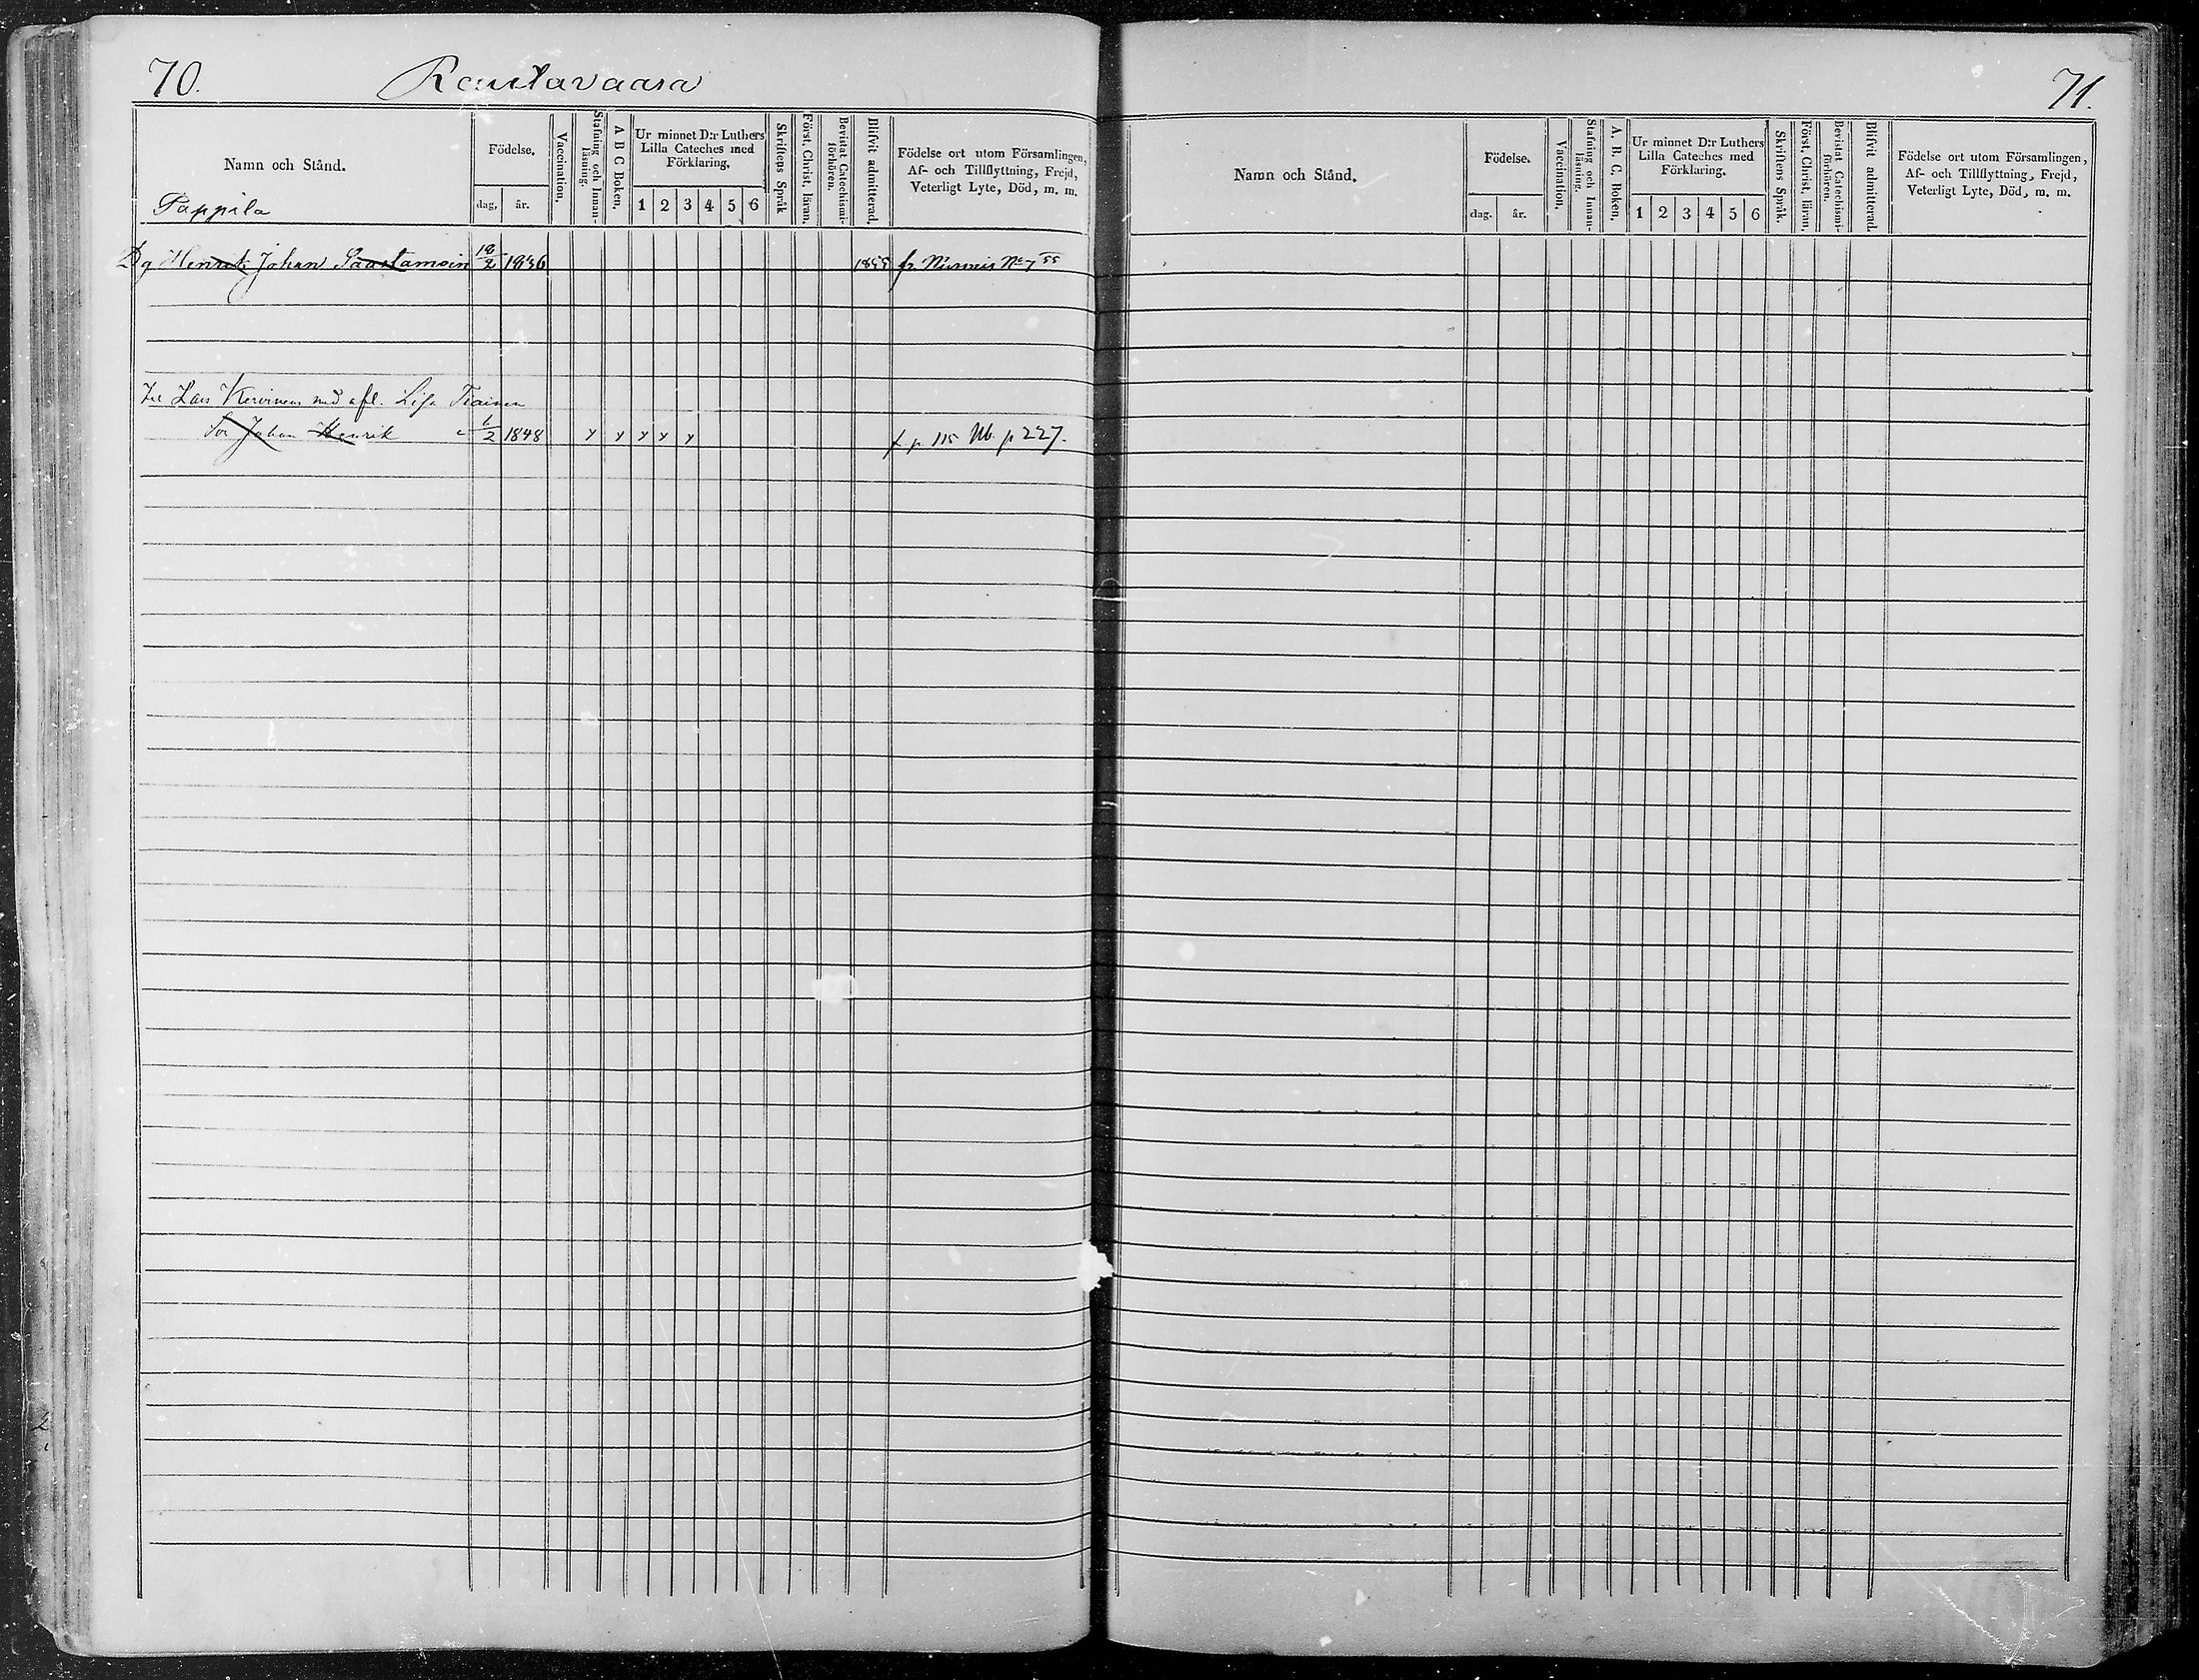 70. Rautavaara
Namn och Stånd.
Födelse.
dag. år.
Vaccination.
Stafning och Innan-
läsning.
A B C Boken.
Ur minnet D:r Luthers
Lilla Cateches med
Förklaring.
1 2 3 4 5 6
Skriftens Språk
Först. Christ. läran.
Bevistat Catechismi-
förhören.
Blifvit admitterad.
Födelse ort utom Församlingen,
Af- och Tillflyttning, Frejd,
Veterligt Lyte, Död, m. m.
Pappila
Dg Henrik Johan Saastamoin 18/2 1836 1855 fr. Nurmis No 7 55
Lars Kervinen med afl. Lisa
Son Johan Henrik 1/2 1848 y y y y y p 115 Nb. p 227.
71.
Namn och Stånd.
Födelse.
dag. år.
Vaccination.
Stafning och Innan-
läsning.
A. B. C. Boken.
Ur minnet D:r Luthers
Lilla Cateches med
Förklaring.
1 2 3 4 5 6
Skriftens Språk.
Först. Christ. läran.
Bevistat Catechismi-
förhören.
Blifvit admitterad.
Födelse ort utom Församlingen,
Af- och Tillflyttning, Frejd,
Veterligt Lyte, Död, m. m.